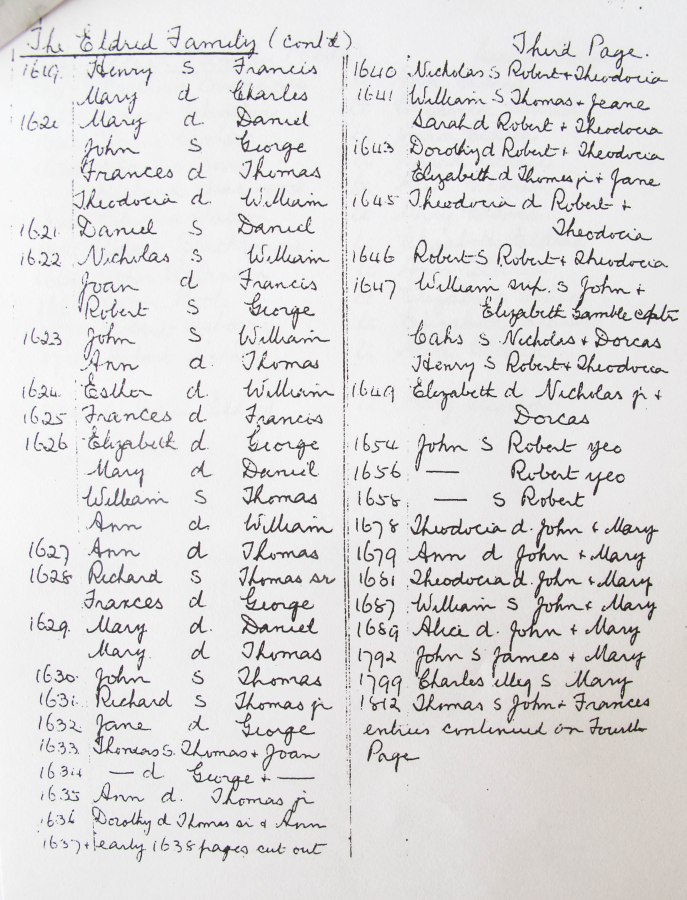 The Eldred Family (cont'd)
1619. Henry S Francis
Mary d Charles
1620 Mary d Daniel
John S George
Frances d Thomas
Theodocia d. William
1621. Daniel S Daniel
1622 Nicholas S William
Joan d Francis
Robert S George
1623 John S William
Ann d. Thomas
1624. Esther d. William
1625 Frances d Francis
1626 Elizabeth d. George
Mary d Daniel
William S Thomas
Ann d. William
1627 Ann d Thomas
1628 Richard S Thomas sr
Frances d George
1629. Mary d. Daniel
Mary d Thomas
1630. John S Thomas
1631. Richard S Thomas jr
1632 Jane d George
1633 Thomas S. Thomas + Joan
1634 — d George + —
1635 Ann d. Thomas jr
1636 Dorothy d Thomas sr + Ann
1637 + early 1638 pages cut out
Third Page.
1640 Nicholas S Robert + Theodocia
1641 William S Thomas + Jeane
Sarah d Robert + Theodocia
1643 Dorothy d Robert + Theodocia
Elizabeth d Thomas jr + Jane
1645 Theodocia d Robert +
Theodocia
1646 Robert S Robert + Theodocia
1647 William sup. S John +
Elizabeth Gamble
Oaks S Nicholas + Dorcas
Henry S Robert + Theodocia
1649 Elizabeth d Nicholas jr +
Dorcas
1654 John S Robert yeo
1656 — Robert yeo
1658 — S Robert
1678 Theodocia d. John & Mary
1679 Ann d John + Mary
1681 Theodocia d. John + Mary
1687 William S John + Mary
1689 Alice d. John + Mary
1792 John S James + Mary
1799 Charles illeg S Mary
1812 Thomas S John + Frances
entries continued on Fourth
Page